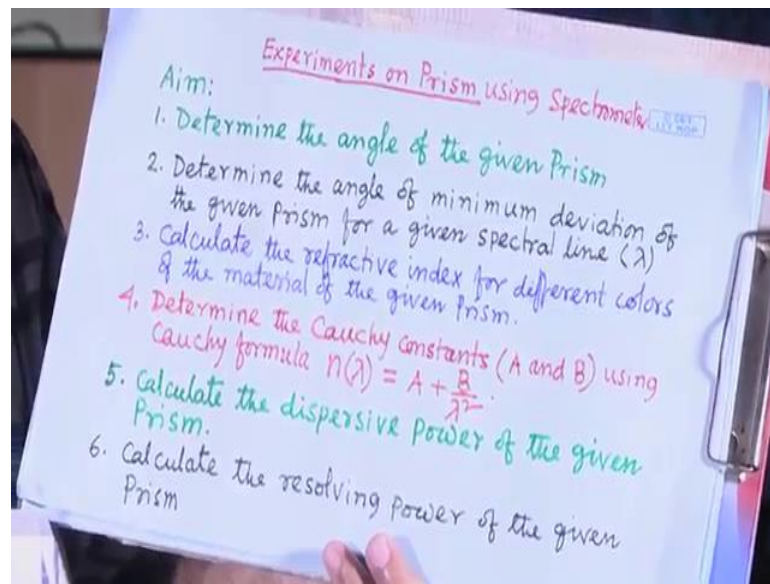 Experiments on Prism using Spectrometer
Aim:
1. Determine the angle of the given Prism
2. Determine the angle of minimum deviation of
the given Prism for a given spectral line (λ)
3. Calculate the refractive index for different colors
of the material of the given Prism.
4. Determine the Cauchy constants (A and B) using
Cauchy formula n(λ) = A + B/λ².
5. Calculate the dispersive power of the given
Prism.
6. Calculate the resolving power of the given
Prism